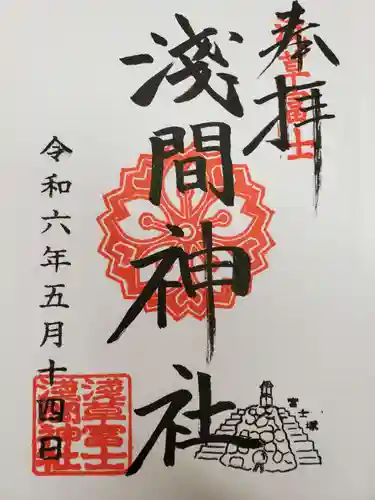 奉拝
浅草富士
淺間神社
令和六年五月十四日
淺草富士
淺間神社
富士塚